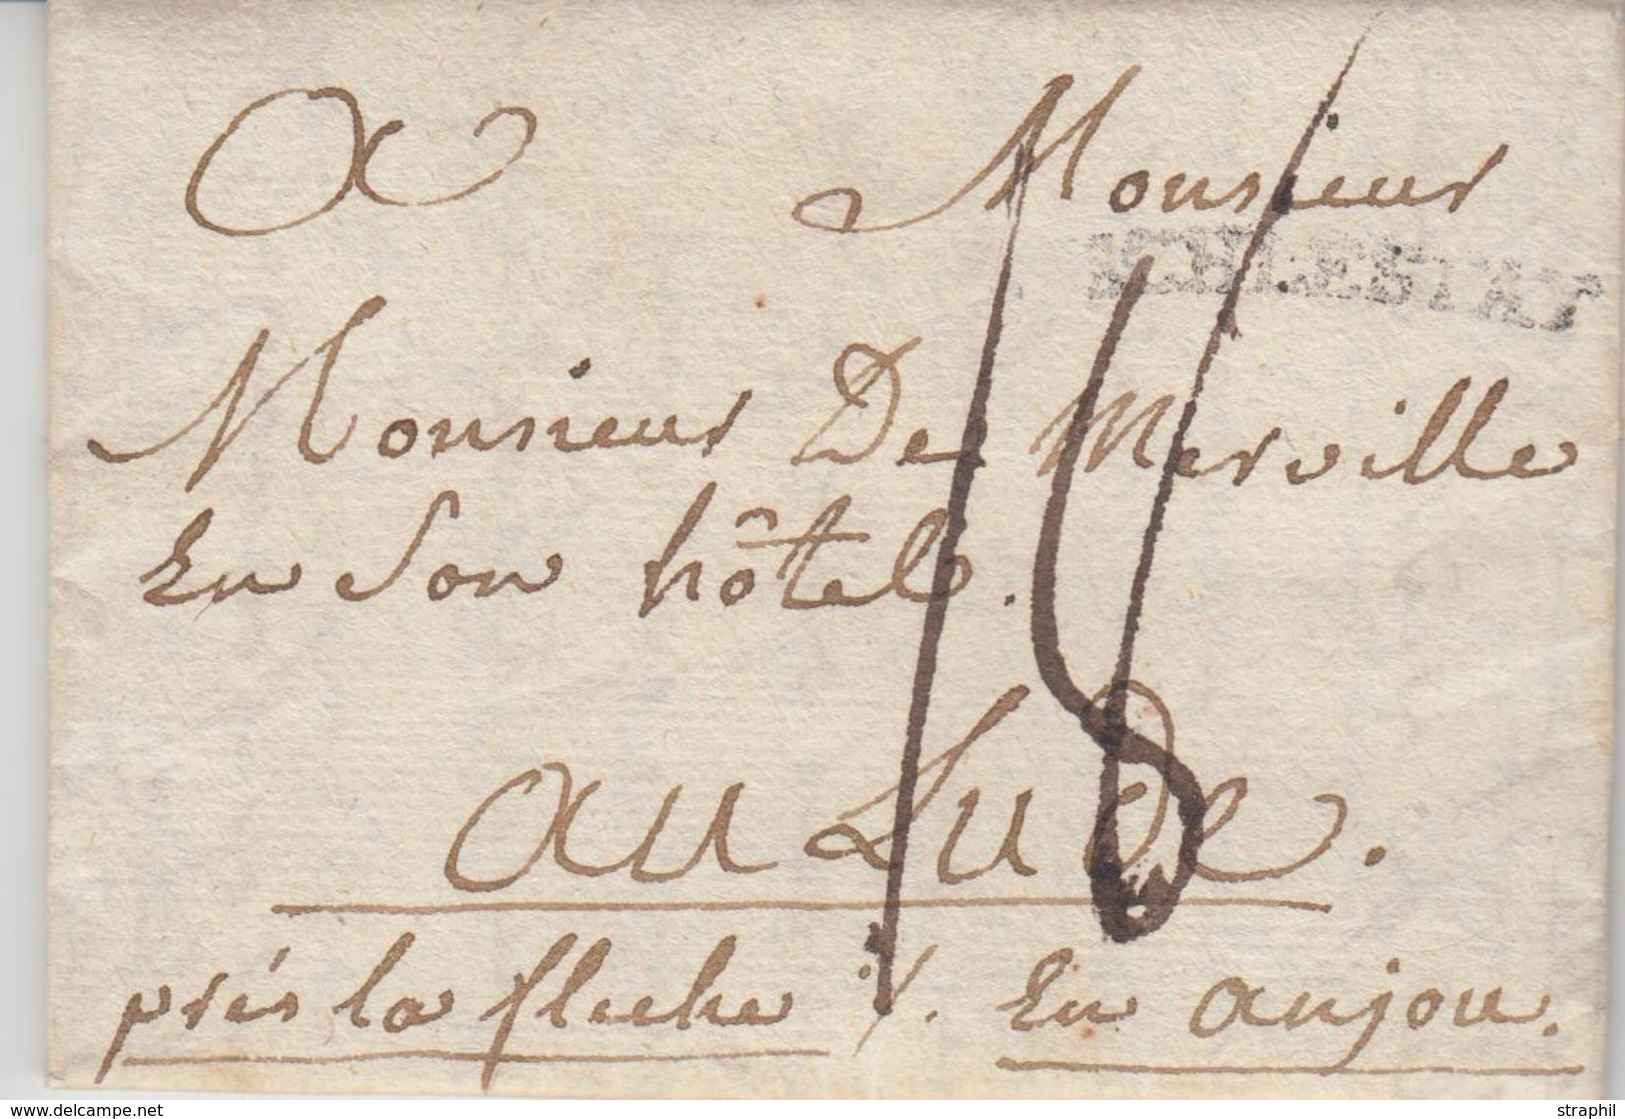 A Monsieur
SCHLESTAT
Monsieur De Merville
En Son hôtel.
18
au Lude.
près la fleche /. En anjou.
www.delcampe.net
straphil